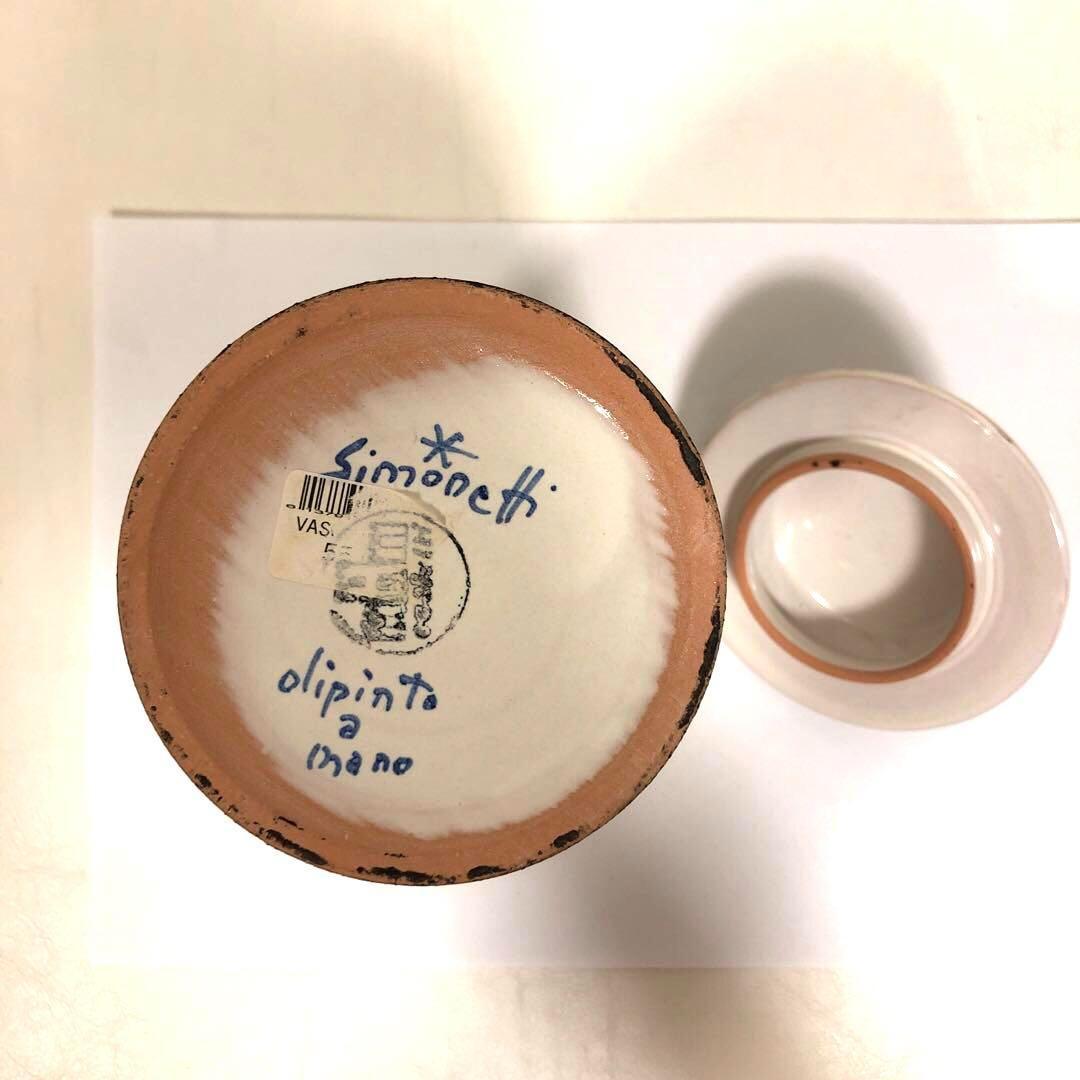 *
Simonetti
VAS
dipinto
a
mano